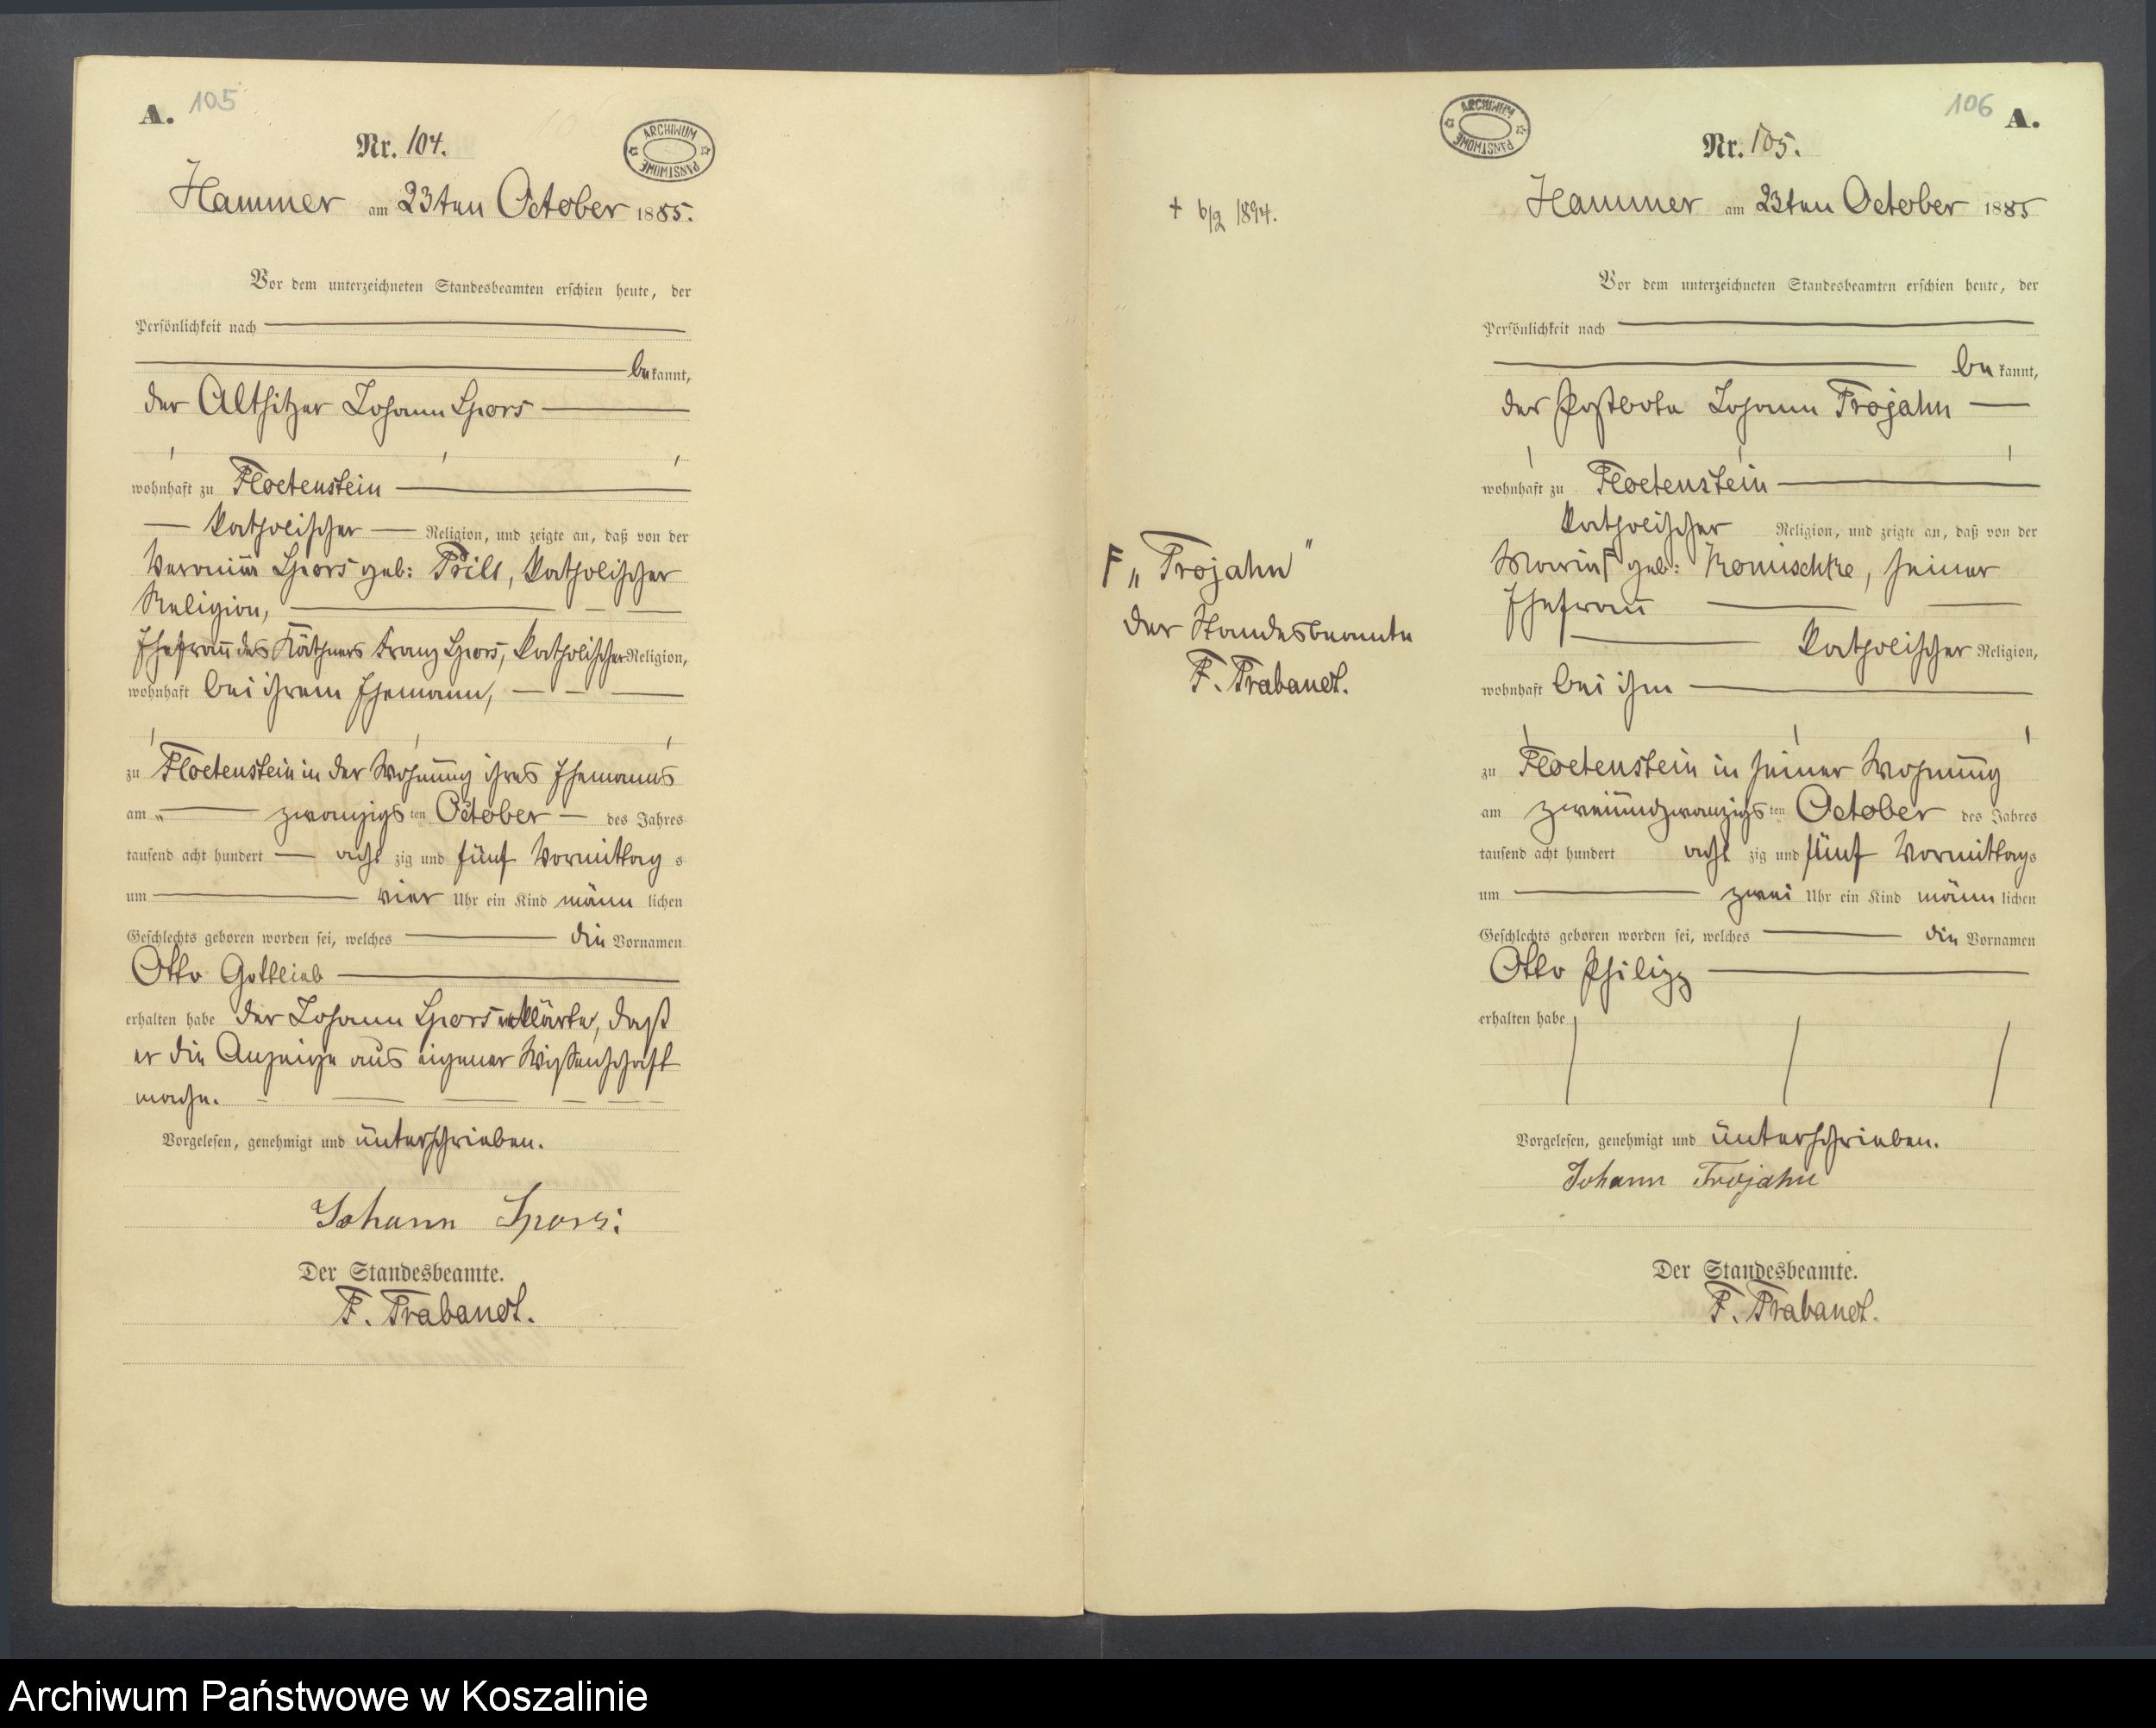 A. 105
Nr. 104.
ARCHIWUM PAŃSTWOWE
Hammer am 23ten October 1885.
Vor dem unterzeichneten Standesbeamten erschien heute, der
Persönlichkeit nach
bekannt,
der Altsitzer Johann Spors
wohnhaft zu Floetenstein
katholischer Religion, und zeigte an, daß von der
Veronika Spors geb: Prill, katholischer
Religion,
Ehefrau des Käthners Franz Spors, katholischer Religion,
wohnhaft bei ihrem Ehemann,
zu Floetenstein in der Wohnung ihres Ehemanns
am zwanzigsten October des Jahres
tausend acht hundert achtzig und fünf Vormittags
um vier Uhr ein Kind männlichen
Geschlechts geboren worden sei, welches die Vornamen
Otto Gottlieb
erhalten habe der Johann Spors erklärte, daß
er die Anzeige aus eigener Wissenschaft
mache.
Vorgelesen, genehmigt und unterschrieben.
Johann Spors:
Der Standesbeamte.
F. Trabandt.
106 A.
Nr. 105.
ARCHIWUM PAŃSTWOWE
Hammer am 23ten October 1885
† 6/2 1894.
Vor dem unterzeichneten Standesbeamten erschien heute, der
Persönlichkeit nach
bekannt,
der Postbote Johann Trojahn
wohnhaft zu Floetenstein
katholischer Religion, und zeigte an, daß von der
Maria F geb: Komischke, seiner
Ehefrau
katholischer Religion,
wohnhaft bei ihm
F „Trojahn"
der Standesbeamte
F. Trabandt.
zu Floetenstein in seiner Wohnung
am zweiundzwanzigsten October des Jahres
tausend acht hundert achtzig und fünf Vormittags
um zwei Uhr ein Kind männlichen
Geschlechts geboren worden sei, welches die Vornamen
Otto Philipp
erhalten habe
Vorgelesen, genehmigt und unterschrieben.
Johann Trojahn
Der Standesbeamte.
F. Trabandt.
Archiwum Państwowe w Koszalinie